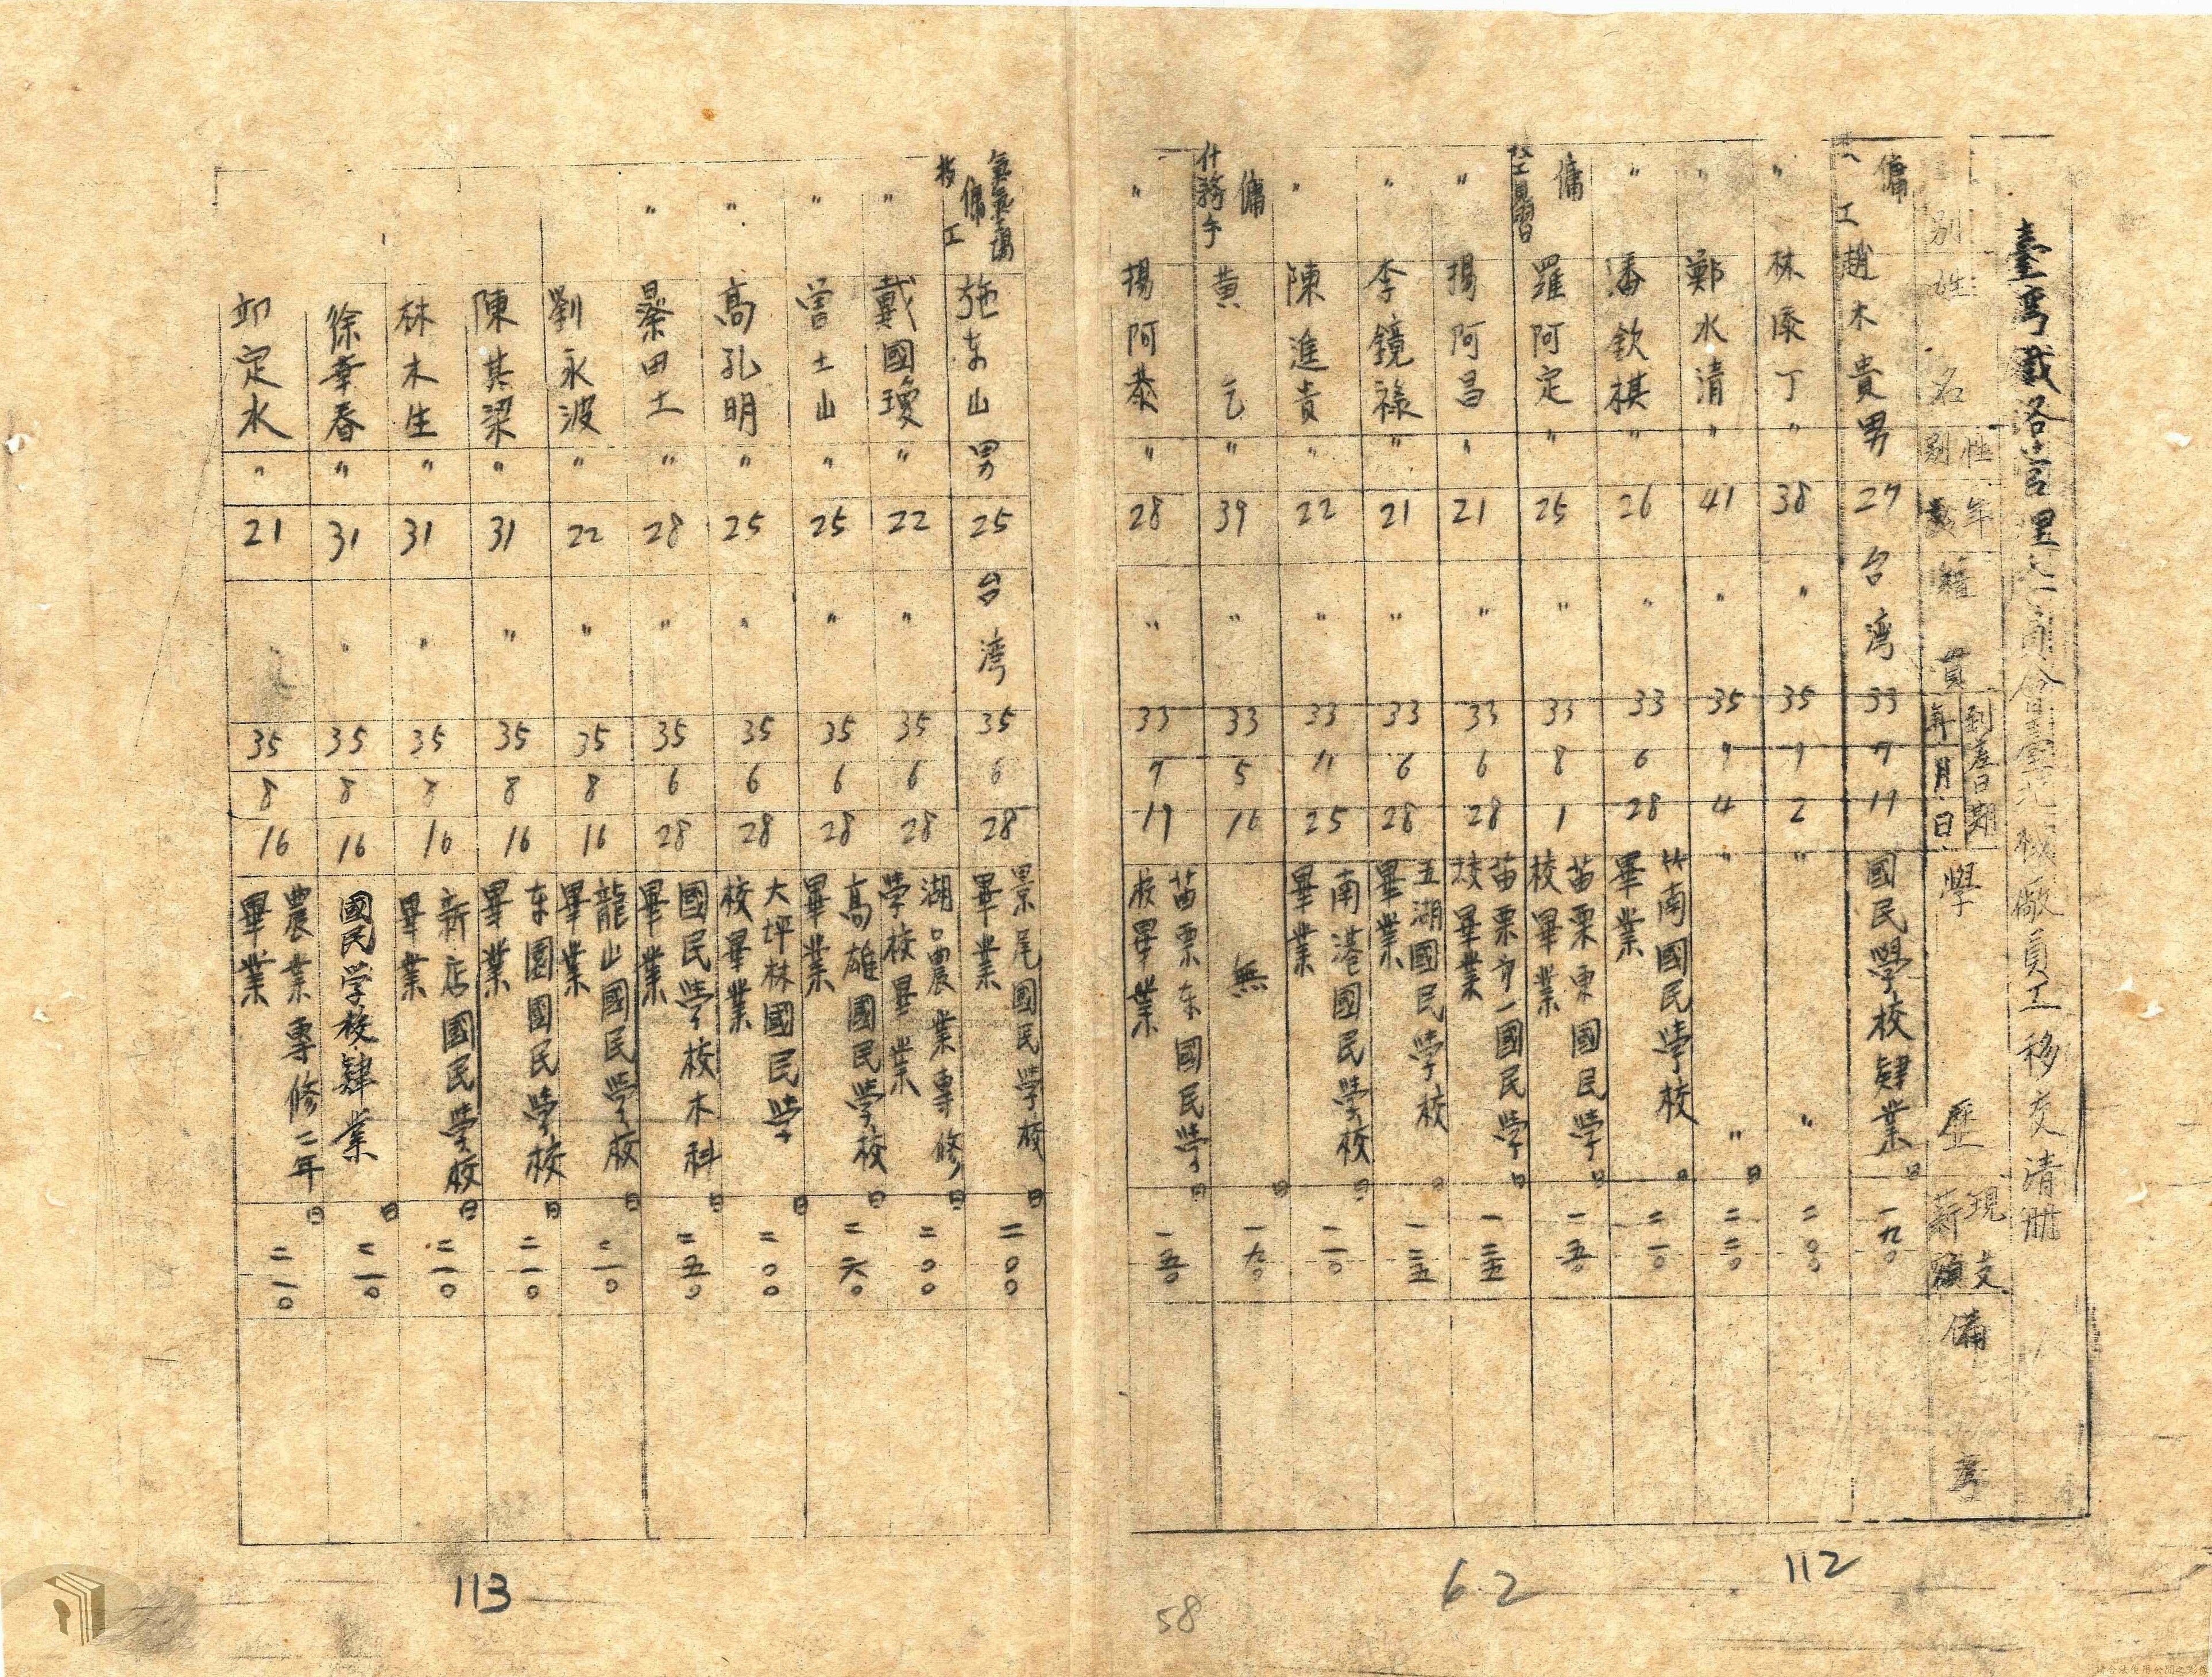 臺灣 員工移交清冊
別 姓名 性別 年 籍貫 到差日期 年 月 日 學歷 現支薪額 備考
傭工 趙木貴 男 27 台灣 33 7 19 國民學校肄業 日 一九〇
〃 林 丁 〃 38 〃 35 1 2 〃 〃 二〇〇
〃 鄭水清 〃 41 〃 35 4 〃 〃 日 二二〇
〃 潘欽棋 〃 26 〃 33 6 28 竹南國民學校畢業 日 二一〇
傭 見習 羅阿定 〃 25 〃 33 8 1 苗栗東國民學校畢業 日 一五〇
〃 楊阿昌 〃 21 〃 33 6 28 苗栗 一國民學校畢業 日 一三五
〃 李鏡祿 〃 21 〃 33 6 28 五湖國民學校畢業 日 一三五
〃 陳進貴 〃 22 〃 33 11 25 南港國民學校畢業 日 二一〇
傭 什務手 黃乞 〃 39 〃 33 5 16 無 日 一九〇
〃 楊阿泰 〃 28 〃 33 7 19 苗栗东國民學校畢業 日 一五〇
58
6.2
112
傭 工 施东山 男 25 台灣 35 6 28 景尾國民學校畢業 日 二〇〇
〃 戴國瓊 〃 22 〃 35 6 28 湖口農業專修學校畢業 日 二〇〇
〃 曾土山 〃 25 〃 35 6 28 高雄國民學校畢業 日 二六〇
〃 高孔明 〃 25 〃 35 6 28 大坪林國民學校畢業 日 二〇〇
〃 田土 〃 28 〃 35 6 28 國民學校木科畢業 日 二五〇
劉永波 〃 22 〃 35 8 16 龍山國民學校畢業 日 二一〇
陳其梁 〃 31 〃 35 8 16 东園國民學校畢業 日 二一〇
林木生 〃 31 〃 35 8 16 新店國民學校畢業 日 二一〇
徐幸春 〃 31 〃 35 8 16 國民学校肄業 日 二一〇
邱定水 〃 21 35 8 16 農業專修二年畢業 日 二一〇
113